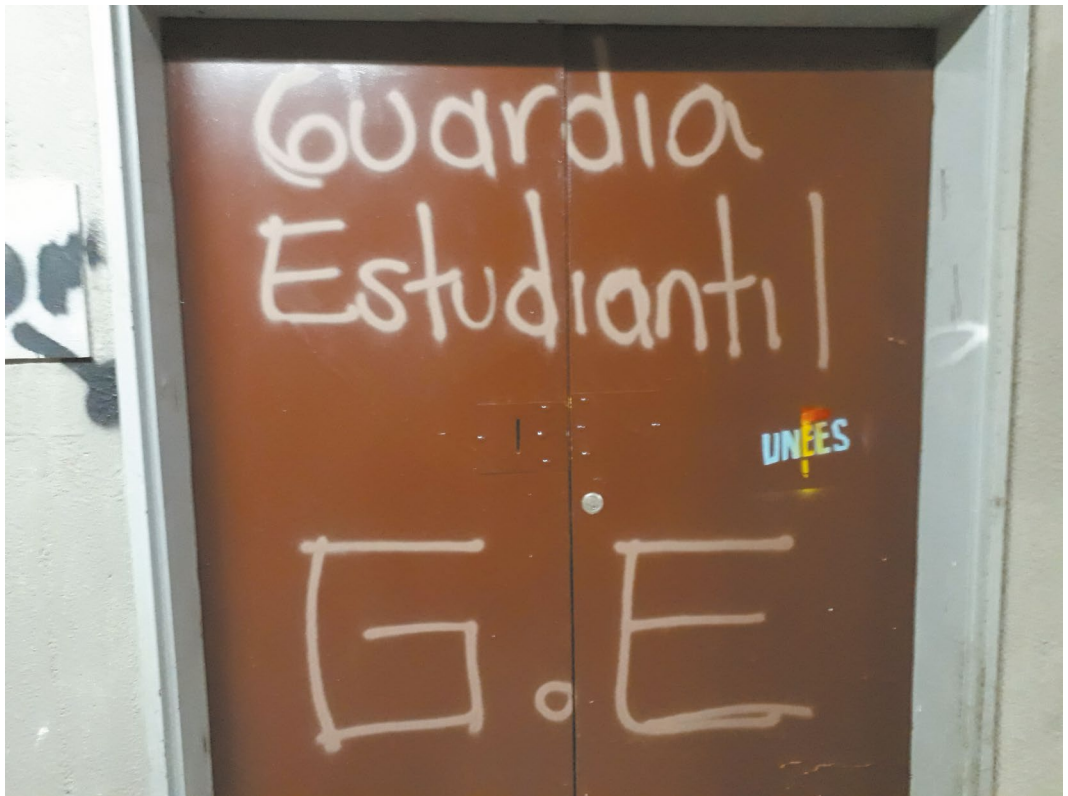 Guardia
Estudiantil
UNEES
G.E